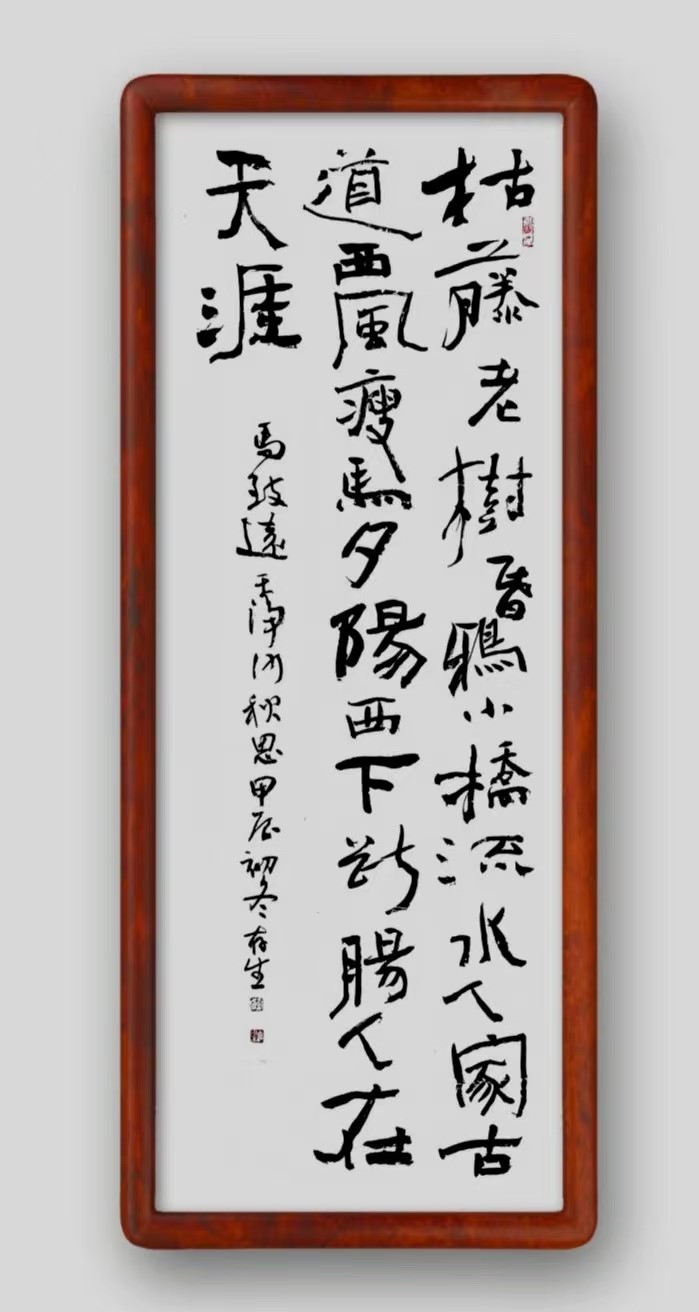 枯藤老樹昏鴉小橋流水人家古
道西風瘦馬夕陽西下斷腸人在
天涯
馬致遠天淨沙秋思甲辰初冬存生